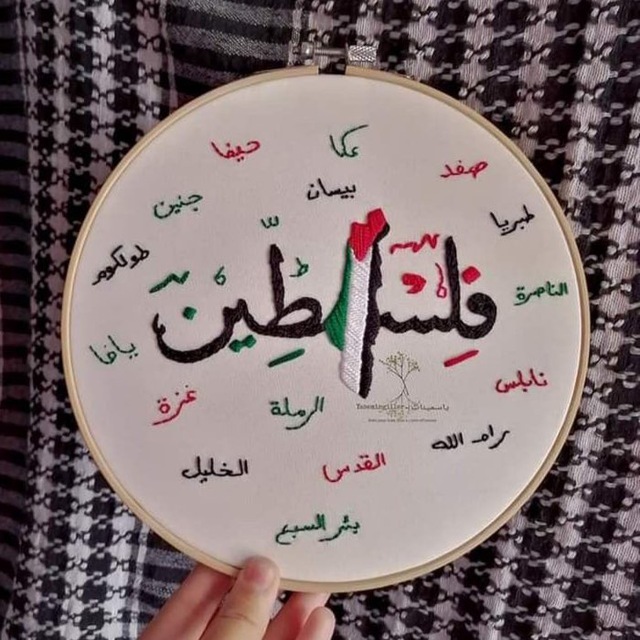 عكا
حيفا
صفد
بيسان
جنين
طبريا
طولكرم
الناصرة
فلسطين
يافا
نابلس
غزة
الرملة
ياسمينك
رام الله
القدس
الخليل
بئر السبع